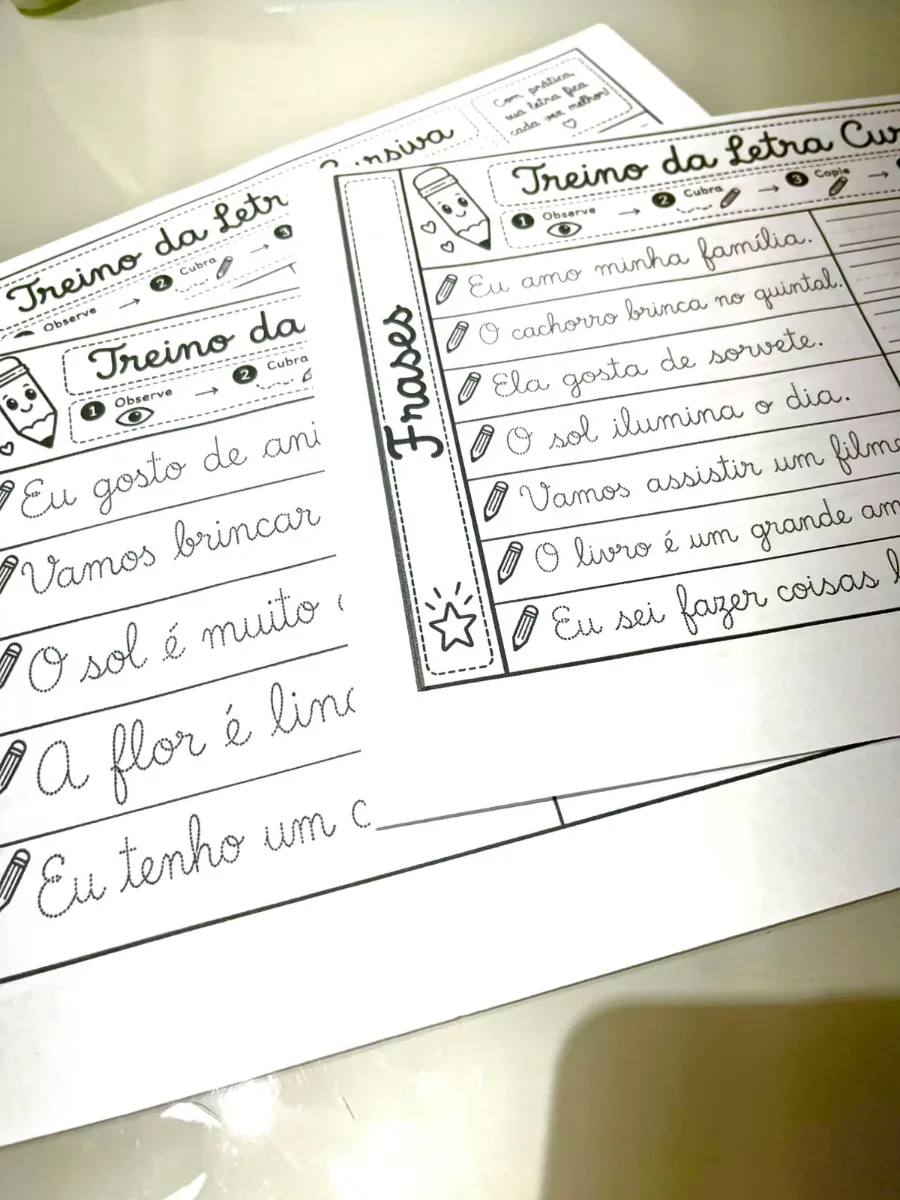 Com prática,
sua letra fica
cada vez melhor!
Treino da Letr Cursiva
Observe
2 Cubra
3
Treino da
1 Observe
2 Cubra
Eu gosto de
Vamos brincar
O sol é muito
A flor é
Eu tenho um
Treino da Letra
1 Observe
2 Cubra
3 Copie
Frases
Eu amo minha família.
O cachorro brinca no quintal.
Ela gosta de sorvete.
O sol ilumina o dia.
Vamos assistir um filme
O livro é um grande
Eu sei fazer coisas